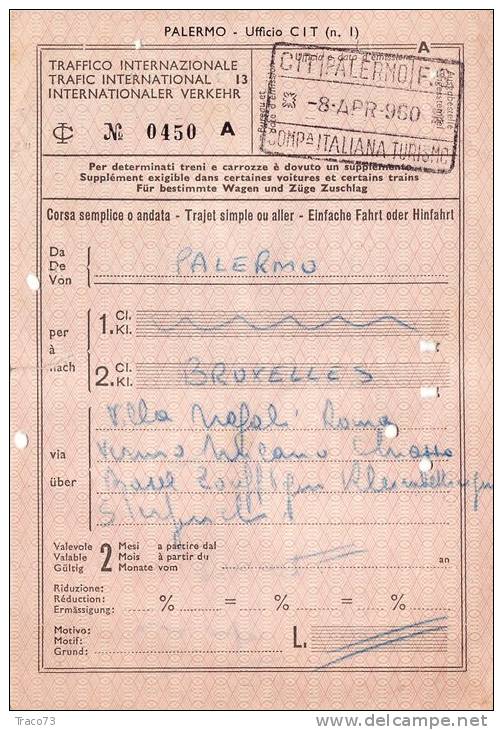 PALERMO - Ufficio CIT (n. 1)
A
TRAFFICO INTERNAZIONALE
TRAFIC INTERNATIONAL 13
INTERNATIONALER VERKEHR
Ufficio e data d'emissione
Bureau et date d'émission
Ausgabestelle
CIT PALERMO F.S.
-8.APR.960
COMP.A ITALIANA TURISMO
CI № 0450 A
Per determinati treni e carrozze è dovuto un supplemento
Supplément exigible dans certaines voitures et certains trains
Für bestimmte Wagen und Züge Zuschlag
Corsa semplice o andata - Trajet simple ou aller - Einfache Fahrt oder Hinfahrt
Da
De
Von
PALERMO
per
à
nach
1. Cl.
Kl.
2. Cl.
Kl.
BRUXELLES
via
über
Villa Napoli Roma
Fermo Milano Chiasso
Basel
Valevole
Valable
Gültig
2 Mesi a partire dal
Mois à partir du
Monate vom
an
Riduzione:
Réduction:
Ermässigung:
% = % = %
Motivo:
Motif:
Grund:
L.
Traco73
www.delcampe.net